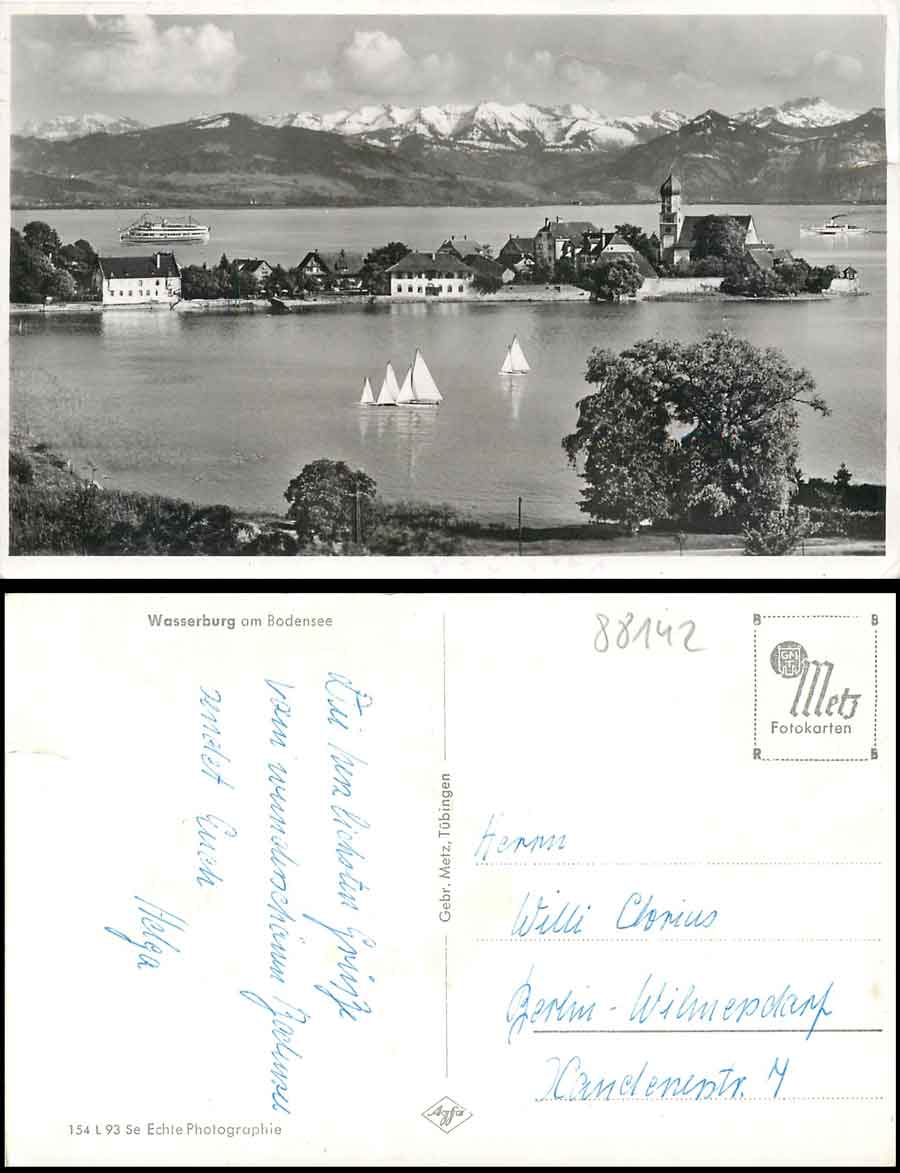 Wasserburg am Bodensee
Die herzlichsten Grüße
vom wunderschönen Bodensee
sendet Euch
Helga
154 L 93 Se Echte Photographie
Gebr. Metz, Tübingen
Agfa
88142
B B
GMT
Metz
Fotokarten
R B
Herrn
Willi Clorius
Berlin-Wilmersdorf